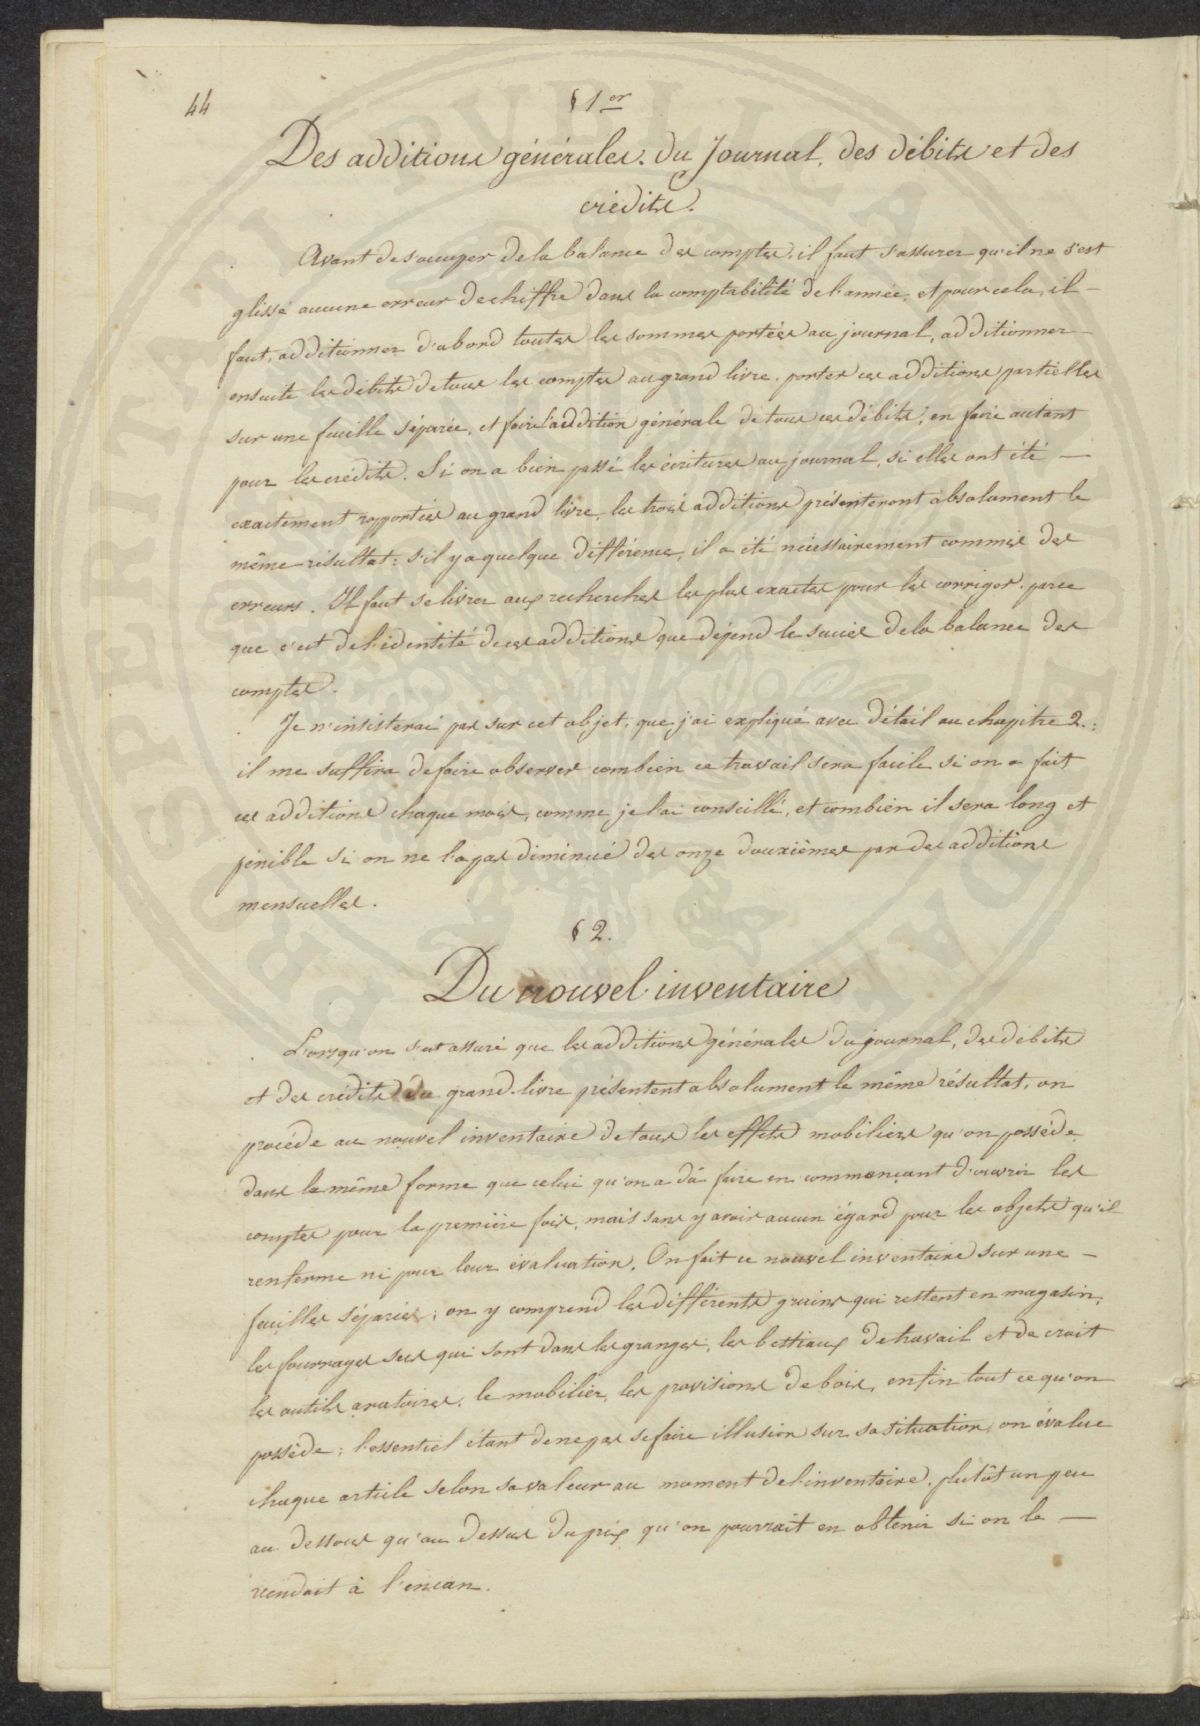 44
§ 1er
Des additions générales du Journal, des débits et des
crédits.
Avant de s'occuper de la balance des comptes, il faut s'assurer qu'il ne s'est
glissé aucune erreur de chiffre dans la comptabilité de l'année, et pour cela, il
faut, additionner d'abord toutes les sommes portées au journal, additionner
ensuite les débits de tous les comptes au grand livre, porter ces additions partielles
sur une feuille séparée, et faire l'addition générale de tous ces débits; en faire autant
pour les crédits. Si on a bien passé les écritures au journal, si elles ont été
exactement rapportées au grand livre, les trois additions présenteront absolument le
même résultat: s'il y a quelque différence, il a été nécessairement commis des
erreurs. Il faut se livrer aux recherches les plus exactes pour les corriger, parce
que c'est de l'identité de ces additions que dépend le succès de la balance des
comptes.
Je n'insisterai pas sur cet objet, que j'ai expliqué avec détail au chapitre 2.:
il me suffira de faire observer combien ce travail sera facile si on a fait
ces additions chaque mois, comme je l'ai conseillé, et combien il sera long et
pénible si on ne l'a pas diminué des onze douxièmes par des additions
mensuelles.
§ 2.
Du nouvel inventaire
Lorsqu'on s'est assuré que les additions générales du journal, des débits
et des crédits du grand-livre présentent absolument le même résultat, on
procède au nouvel inventaire de tous les effets mobiliers qu'on possède
dans la même forme que celui qu'on a dû faire en commençant d'ouvrir les
comptes pour la première fois, mais sans y avoir aucun égard pour les objets qu'il
renferme ni pour leur évaluation. On fait ce nouvel inventaire sur une
feuilles séparées; on y comprend les différents grains qui restent en magasin,
les fourrages secs qui sont dans les granges, les bestiaux de travail et de croit
les outils aratoires, le mobilier, les provisions de bois, enfin tout ce qu'on
possède; l'essentiel étant de ne pas se faire illusion sur sa situation, on évalue
chaque article selon sa valeur au moment de l'inventaire, plutôt un peu
au dessous qu'au dessus du prix qu'on pourrait en obtenir si on le
vendait à l'encan.
PROSPERITATI PVBLICAE AVGENDAE